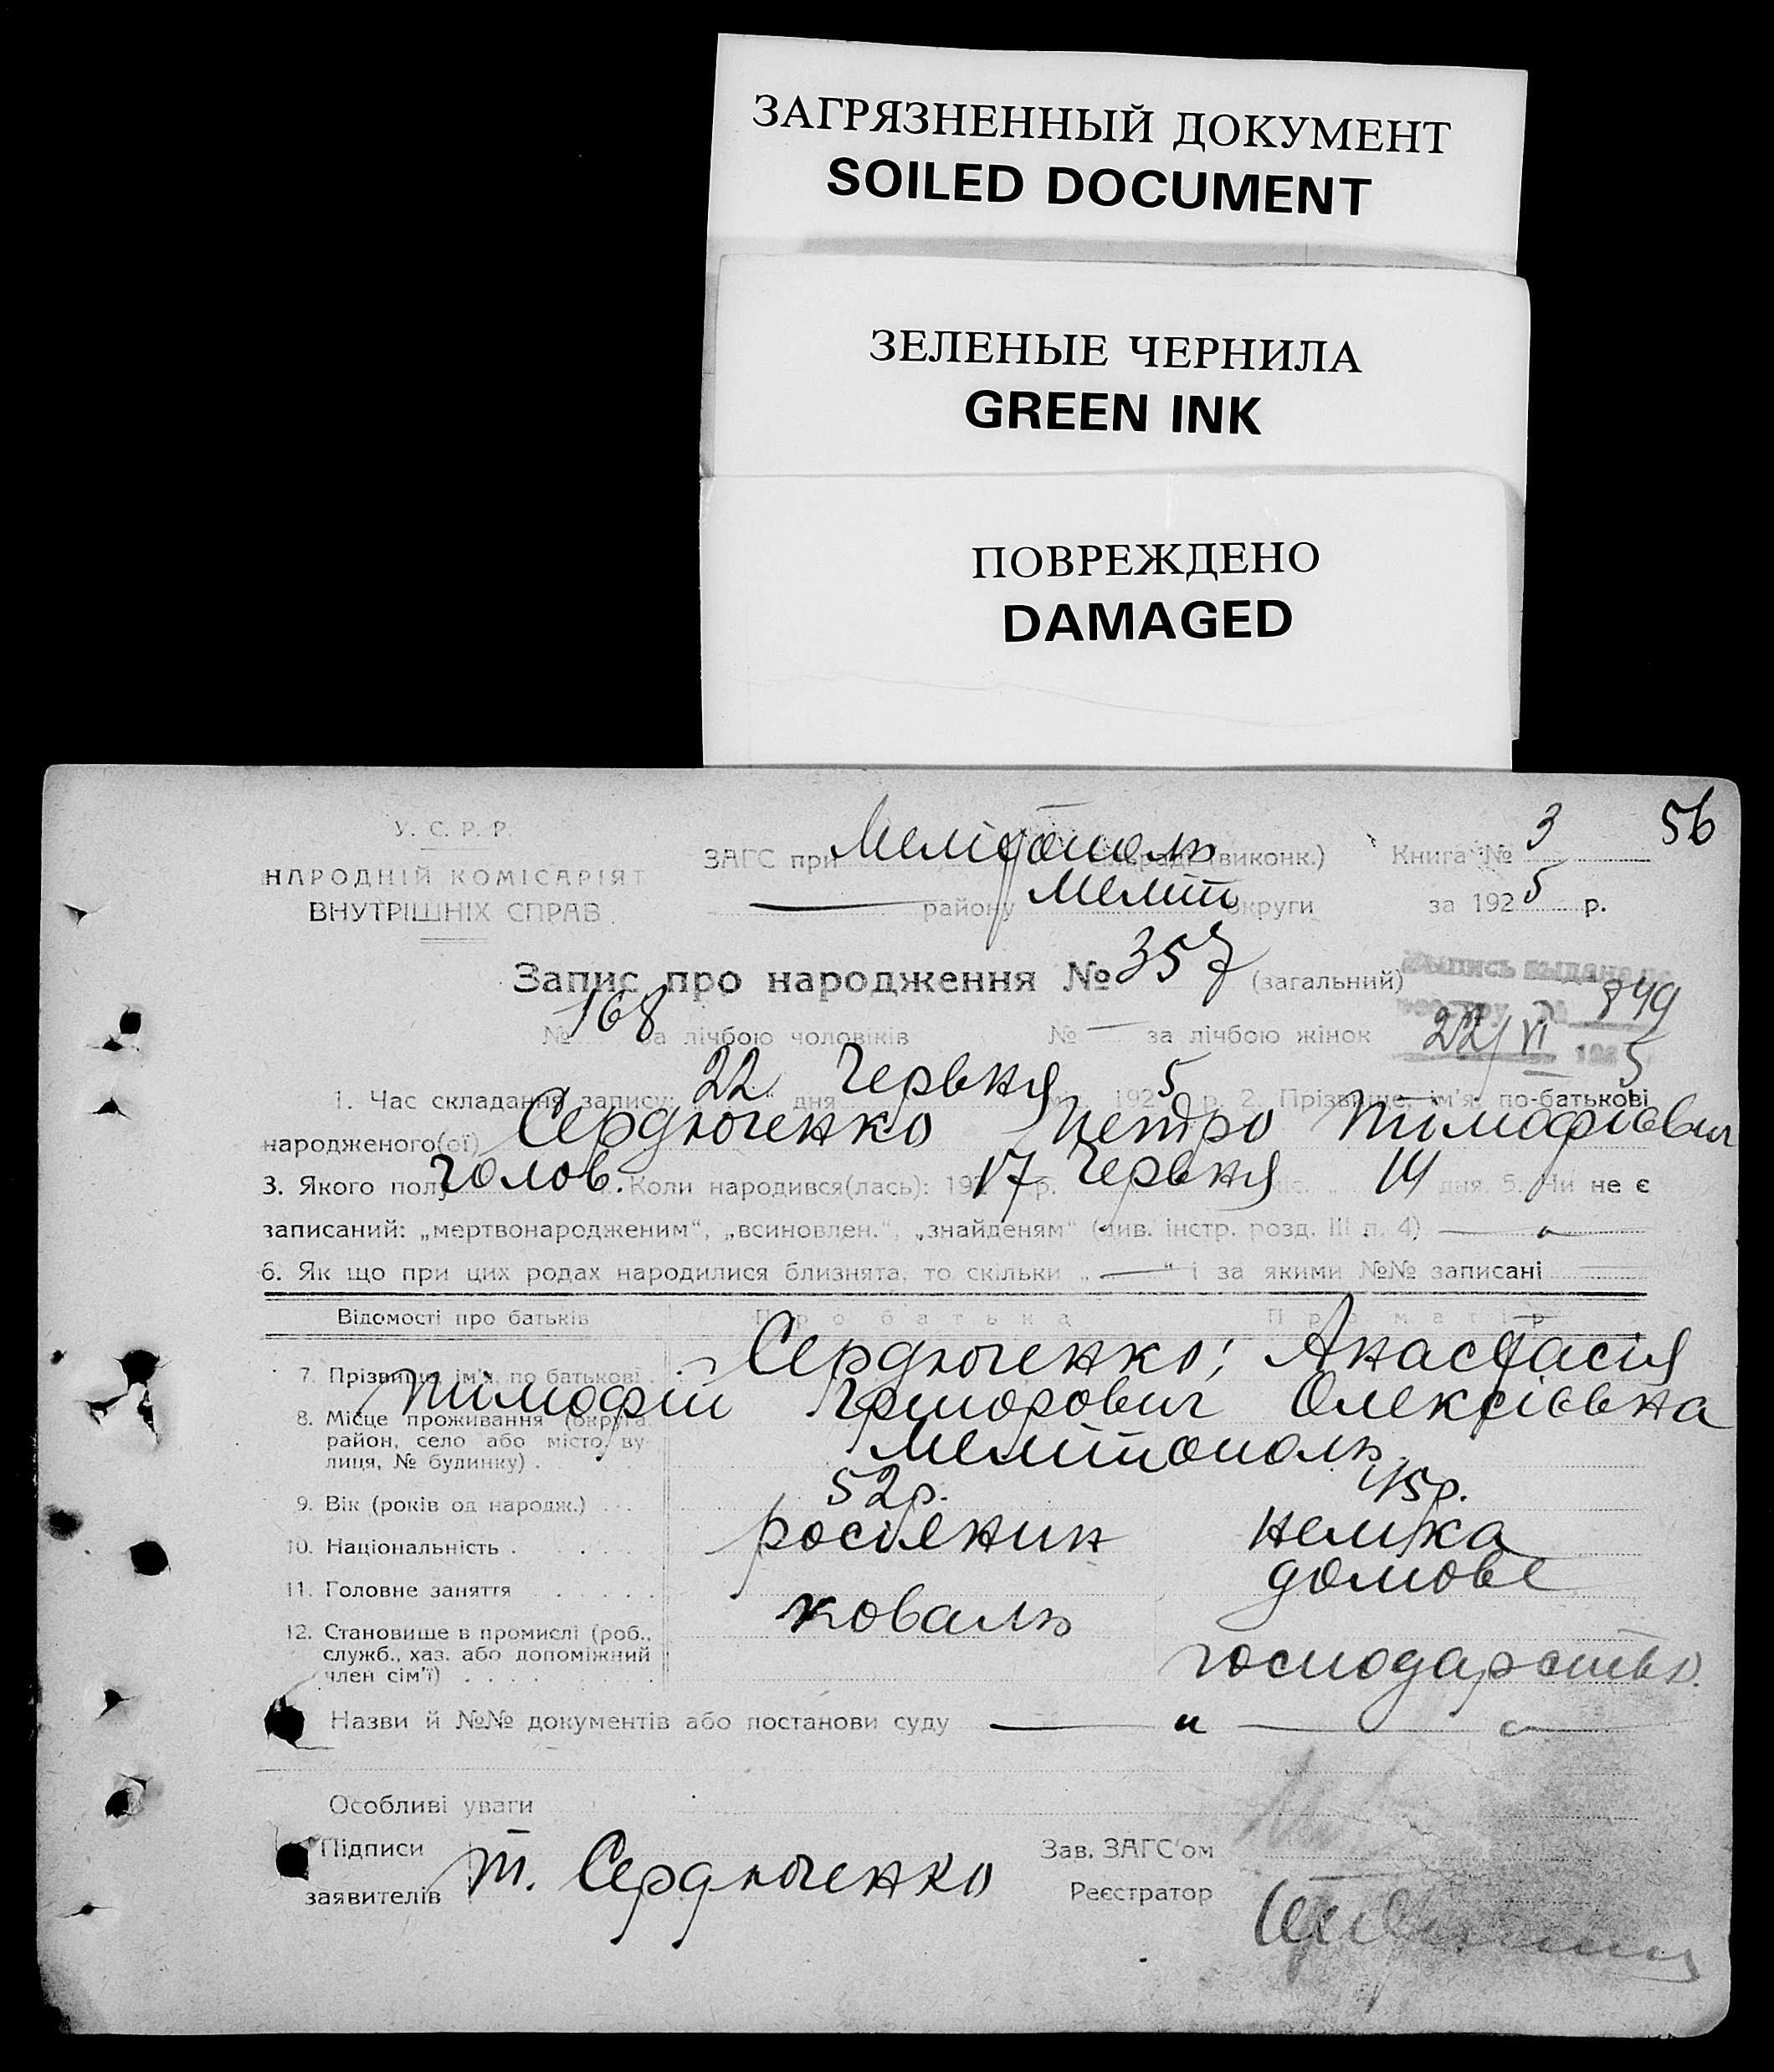 ЗАГРЯЗНЕННЫЙ ДОКУМЕНТ
SOILED DOCUMENT
ЗЕЛЕНЫЕ ЧЕРНИЛА
GREEN INK
ПОВРЕЖДЕНО
DAMAGED
56
У. С. Р. Р.
НАРОДНІЙ КОМІСАРІЯТ
ВНУТРІШНІХ СПРАВ
ЗАГС при Мелітополь (виконк.) Книга № 3
— району Меліт округи за 1925 р.
Запис про народження № 357 (загальний)
Выпись выдана по
849
№ 168 за лічбою чоловіків № — за лічбою жінок
22/VI 1925
1. Час складання запису: 22 дня Червня 1925 р. 2. Прізвище, ім'я, по-батькові
народженого(ої) Сердюченко Петро Тимофієвич
3. Якого полу Чолов. Коли народився(лась): 192 р. 17 Червня міс. 14 дня. 5. Чи не є
записаний: „мертвонародженим“, „всиновлен.“, „знайденям“ (див. інстр. розд. III п. 4) —
6. Як що при цих родах народилися близнята, то скільки „—“ і за якими №№ записані
Відомості про батьків Про батька Про матір
7. Прізвище, ім'я, по батькові Сердюченко; Анастасія
Тимофій Григорович Олексієвна
8. Місце проживання (округа, район, село або місто, ву-
лиця, № будинку) . Мелітополь
9. Вік (років од народж.) . . . 52р. 45р.
10. Національність . . . . росіянин немка
11. Головне заняття . . . . . коваль домове
господарство.
12. Становище в промислі (роб.,
служб., хаз. або допоміжний
член сім'ї) . . . . .
Назви й №№ документів або постанови суду — „ —
Особливі уваги
Підписи
заявителів Т. Сердюченко
Зав. ЗАГС'ом
Реєстратор